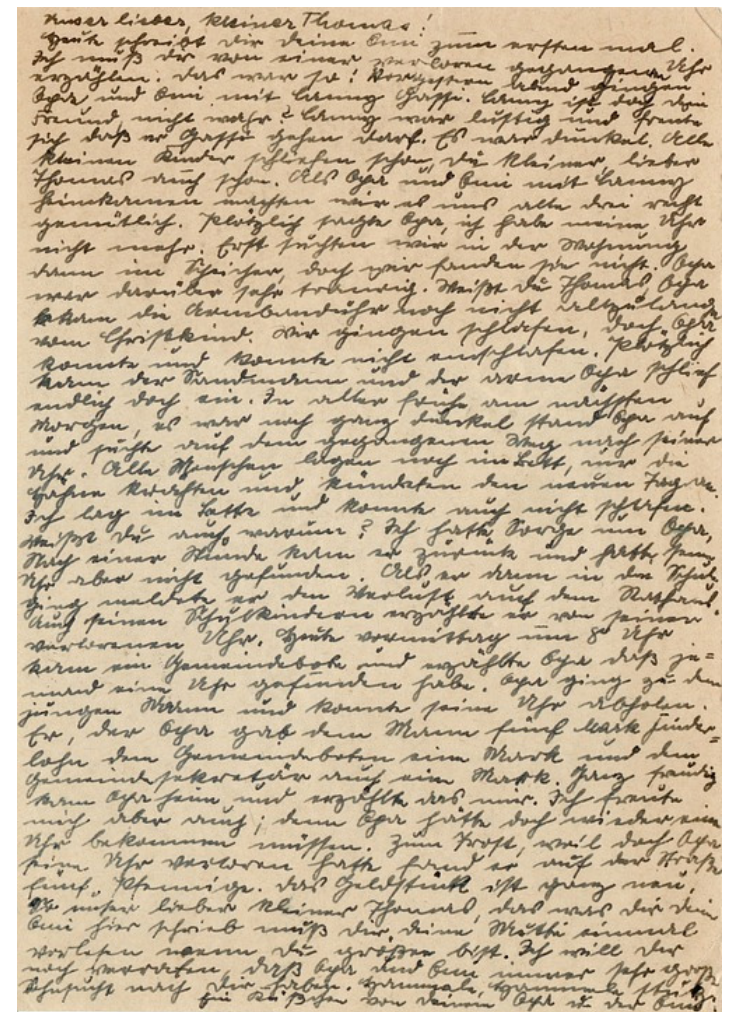 Unser lieber, kleiner Thomas!
Heute schreibt dir deine Omi zum ersten mal.
Ich muß dir von einer verloren gegangenen Uhr
erzählen. Das war so: Vorgestern Abend gingen
Opa und Omi mit Lanny Gassi. Lanny ist doch dein
Freund, nicht wahr? Lanny war lustig und freute
sich daß er Gassi gehen darf. Es war dunkel. Alle
kleinen Kinder schliefen schon, du kleiner, lieber
Thomas auch schon. Als Opa und Omi mit Lanny
heimkamen machten wir es uns alle drei recht
gemütlich. Plötzlich sagte Opa, ich habe meine Uhr
nicht mehr. Erst suchten wir in der Wohnung
dann im doch wir fanden sie nicht. Opa
war darüber sehr traurig. Weißt du Thomas, Opa
bekam die Armbanduhr noch nicht allzulange
vom Christkind. Wir gingen schlafen, doch Opa
konnte und konnte nicht einschlafen. Plötzlich
kam der Sandmann und der arme Opa schlief
endlich doch ein. In aller frühe am nächsten
Morgen, es war noch ganz dunkel stand Opa auf
und suchte auf dem gegangenen Weg nach seiner
Uhr. Alle Menschen lagen noch im Bett, nur die
Hähne krähten und kündeten den neuen Tag an.
Ich lag im Bette und konnte auch nicht schlafen.
Weißt du auch warum? Ich hatte Sorge um Opa.
Nach einer Stunde kam er zurück und hatte seine
Uhr aber nicht gefunden. Als er dann in die Schule
ging meldete er den Verlust auch dem Rathaus.
Auch seinen Schulkindern erzählte er von seiner
verlorenen Uhr. Heute vormittag um 8 Uhr
kam ein Gemeindebote und erzählte Opa daß je=
mand eine Uhr gefunden habe. Opa ging zu dem
jungen Mann und konnte seine Uhr abholen.
Er, der Opa gab dem Mann fünf Mark Finder=
lohn dem Gemeindeboten eine Mark und dem
Gemeindesekretär auch eine Mark. Ganz freudig
kam Opa heim und erzählte das mir. Ich freute
mich aber auch; denn Opa hätte doch wieder eine
Uhr bekommen müssen. Zum Trost, weil doch Opa
seine Uhr verloren hatte fand er auf der Straße
fünf Pfennige. Das Geldstück ist ganz neu.
So unser lieber kleiner Thomas, das was dir dein
Omi hier schrieb muß dir, deine Mutti einmal
vorlesen wenn du größer bist. Ich will dir
noch verraten, daß Opa und Omi immer sehr große
Sehnsucht nach Dir haben.
Ein Küßchen von deinem Opa u. der Omi.